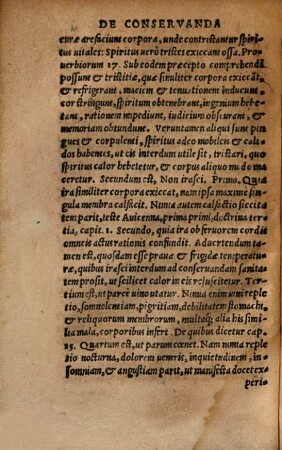 DE CONSERVANDA
curæ arefaciunt corpora, unde contristantur spiri
tus uitales: Spiritus uerò tristes exiccant ossa. Pro
uerbiorum 17. Sub eodem præcepto comprehendi
possunt & tristitiæ, quæ similiter corpora exiccāt
& refrigerant, maciem & tenuationem inducunt
cor stringunt, spiritum obtenebrant, ingenium hebe-
tant, rationem impediunt, iudicium obscurant, &
memoriam obtundunt. Veruntamen aliqui sunt pin
gues & corpulenti, spiritus adeo mobiles & cali-
dos habentes, ut eis interdum utile sit, tristari, quo
spiritus calor hebetetur, & corpus aliquo modo ma
ceretur. Secundum est, Non irasci. Primo. Quia
ira similiter corpora exiccat, nam ipsa maxime sin
gula membra calfacit. Nimia autem calfactio siccita
tem parit, teste Auicenna, prima primi, doctrina ter
tia, capit. 1. Secundo, quia ira ob feruorem cordis
omneis actus rationis confundit. Aduertendum ta-
men est, quosdam esse prauæ & frigidæ temperatu
ræ, quibus irasci interdum ad conseruandam sanita
tem prosit, ut scilicet calor in eis resuscitetur. Ter-
tium est, ut parce uino utatur. Nimia enim uini reple
tio, somnolentiam, pigritiam, debilitatem stomachi,
& reliquorum membrorum, multaq; alia his simi-
lia mala, corporibus infert. De quibus dicetur cap.
15. Quartum est, ut parum cœnet. Nam nimia reple
tio nocturna, dolorem ueneris, inquietudinem, in-
somniam, & angustiam parit, ut manifesta docet ex
peri-